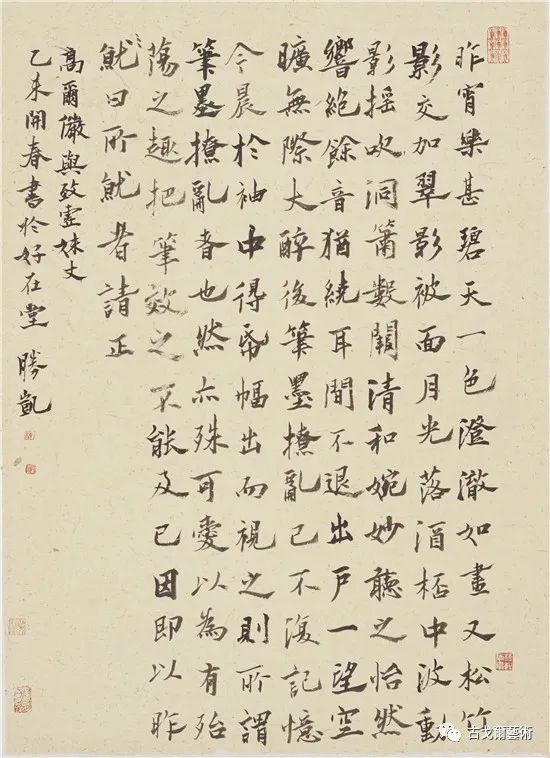 昨宵樂甚碧天一色澄澈如畫又松竹
影交加翠影被面月光落酒桮中波動
影搖吹洞簫數闋清和婉妙聽之怡然
響絕餘音猶繞耳間不退出戶一望空
曠無際大醉後筆墨撩亂已不復記憶
今晨於袖中得帋幅出而視之則所謂
筆墨撩亂者也然亦殊可愛以為有殆
蕩之趣把筆效之不能及已因即以昨
魷曰所魷者請正
高爾儼與致虛妹丈
乙未開春書於好在堂 勝凱
古戈爾藝術